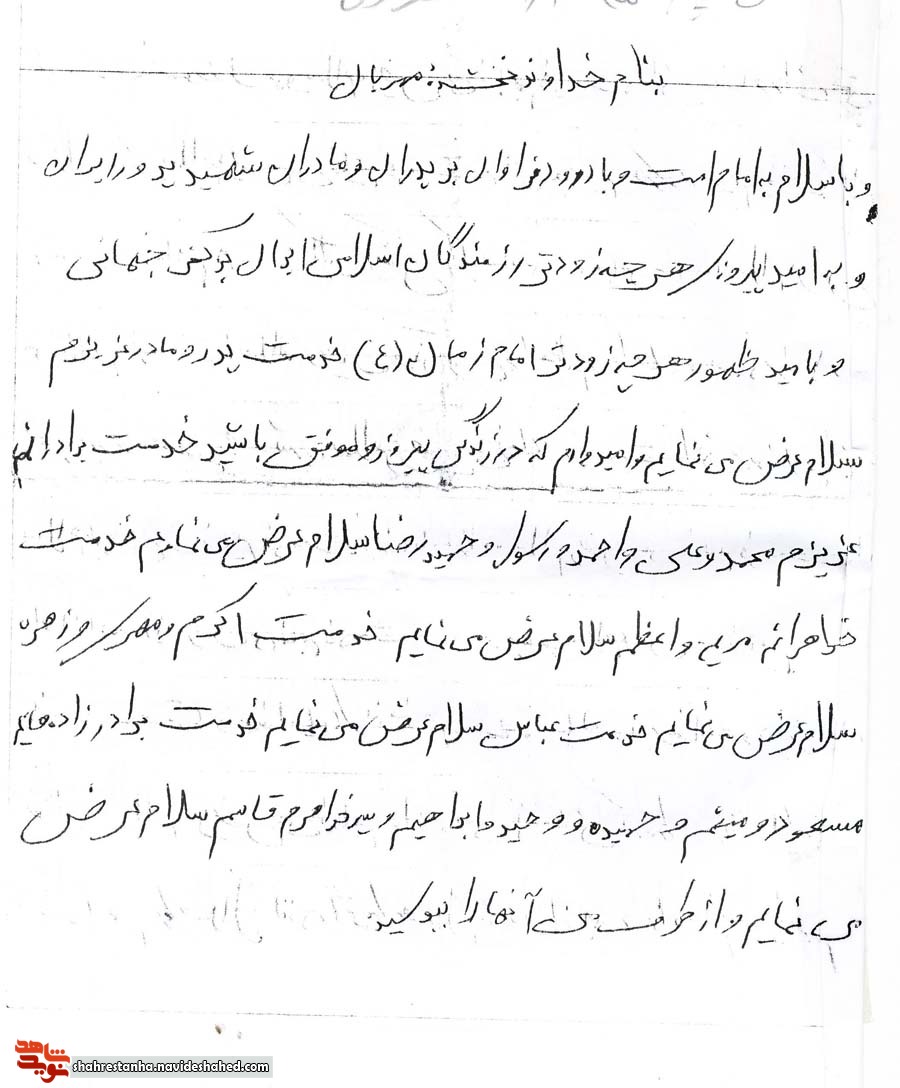 بنام خداوند بخشنده مهربان
و با سلام به امام امت و با درود فراوان بر پدران و مادران شهید پرور ایران
و به امید پیروزی هر چه زودتر رزمندگان اسلامی بر کفر جهانی
و بامید ظهور هر چه زودتر امام زمان (ع) خدمت پدر و مادر عزیزم
سلام عرض می نمایم و امیدوارم که در زندگی پیروز و موفق باشید خدمت برادرانم
عزیزم محمد و علی و احمد و رسول و حمیدرضا سلام عرض می نمایم خدمت
خواهرانم مریم و اعظم سلام عرض می نمایم خدمت اکرم و مهری و زهره
سلام عرض می نمایم خدمت عباس سلام عرض می نمایم خدمت برادر زاده هایم
مسعود و میثم و حمیده و وحید و ابراهیم و قاسم سلام عرض
می نمایم و از طرف من آنها را ببوسید
نوید شاهد
shahrestanha.navideshahed.com